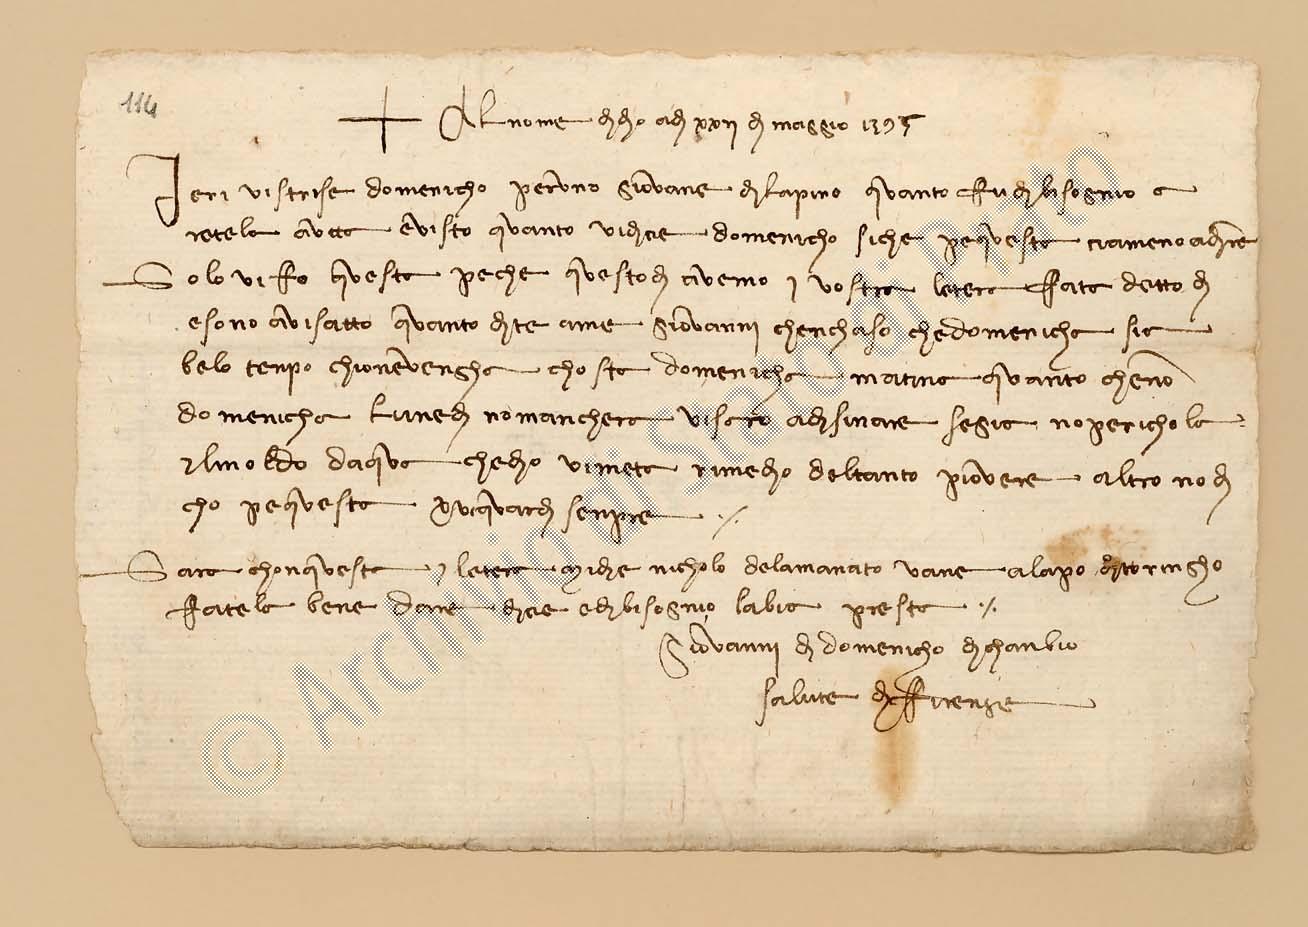 114
+ Al nome di dio adi xxii di maggio 1395
Ieri vi scrise domenicho per uno giovane di lapino quanto fu di bisognio a
retela auta e visto quanto vi dicie domenicho siche pe questa
Solo vi fo questa pe che questo di avemo j vostra letera fata detto di
e sono avisatto quanto dite a me giovanni chen chaso che domenicha sia
belo tenpo chio ne venga chosta domenicha matina quanto che no
domenicha lunedi no manchera vi saro a disinare segia no pericola
daqua che dio vi meta rimedio del tanto piovere altro no di
cho pe questa guardi senpre ./.
Sara chon questa j letera nicholo delamanato vane a lapo di toringho
fatela bene dare e di bisognio labia presta ./.
Giovanni di domenicho di chanbio
salute di firenze
© Archivio di Stato di Prato